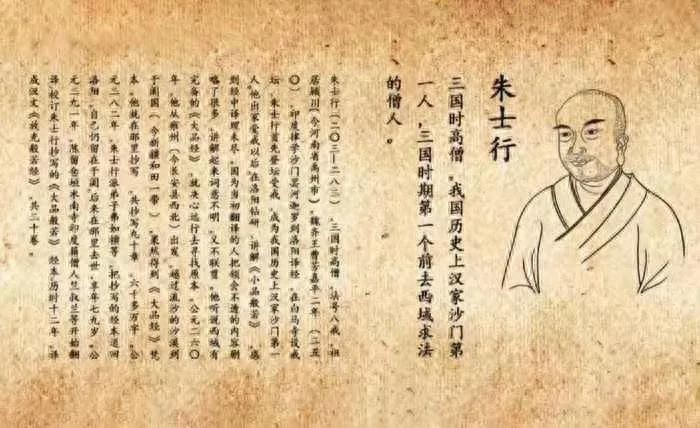 朱士行
三国时高僧。我国历史上汉家沙门第
一人，三国时期第一个前去西域求法
的僧人。
朱士行（二〇三—二八三），三国时高僧，法号八戒，祖
居颍川（今河南省禹州市），魏齐王曹芳嘉平二年（二五
〇），印度律学沙门昙河迦罗到洛阳译经，在白马寺设戒
坛，朱士行首先登坛受戒，成为我国历史上汉家沙门第一
人。他出家受戒以后，在洛阳钻研、讲解《小品般若》，感
到经中译理未尽，因为当初翻译的人把领会不透的内容删
略了很多，讲解起来词意不明，又不联贯。他听说西域有
完备的《大品经》，就决心远行去寻找原本。公元二六〇
年，他从雍州（今长安县西北）出发，越过流沙的沙漠到
于阗国（今新疆和田一带），果然得到《大品经》梵
本。他就在那里抄写，共抄写九十章，六十多万字。公
元二八二年，朱士行派弟子弗如檀等，把抄写的经本送回
洛阳，自己仍留在于阗，后来在那里去世，享年七九岁。公
元二九一年，陈留仓垣水南寺印度籍僧人竺叔兰等开始翻
译、校订朱士行抄写的《大品般若》经本，历时十二年，译
成汉文《放光般若经》，共二十卷。